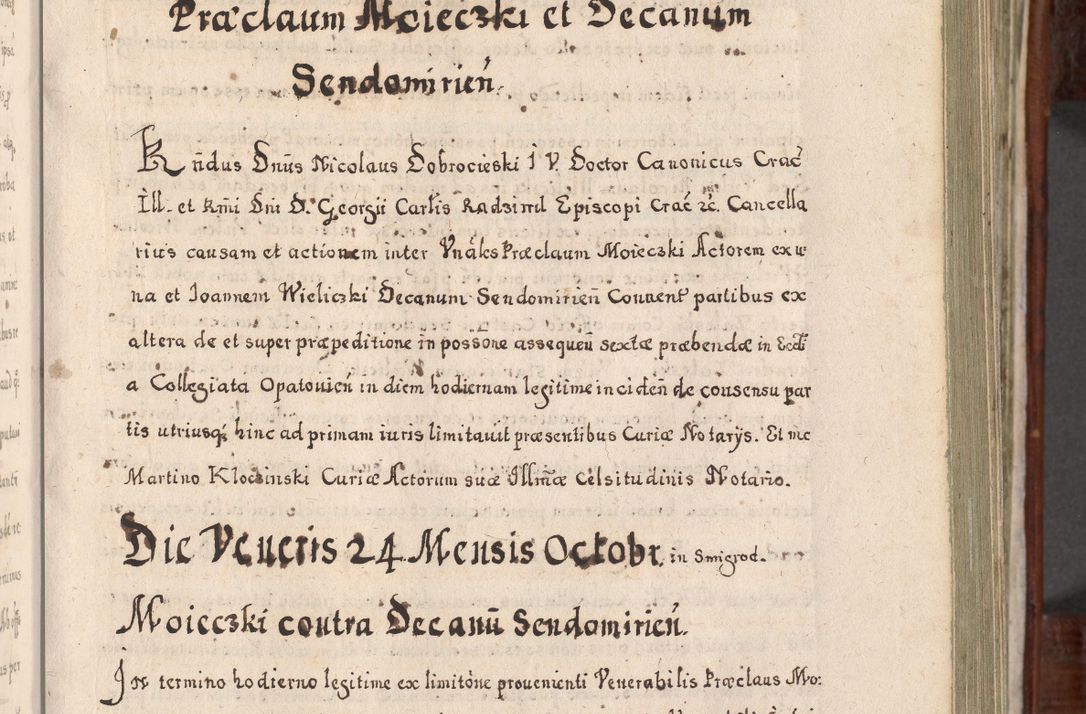 Præclaum Moieczki et Decanum
Sendomirień.
Rńdus Dnūs Nicolaus Dobrocieski I V. Doctor Canonicus Crać
Ill. et Rmi Dni D. Georgii Carlis Radziwil Episcopi Crać &c. Cancella
rius causam et actionem inter Præclaum Moieczki Actorem ex u
na et Joannem Wieliczki Decanum Sendomirień Conuent partibus ex
altera de et super præpeditione in possone assequen̄ sextæ præbendæ in Eccl
a Collegiata Opatouień in diem hodiernam legitime inciden̄ de consensu par
tis utriusq; hinc ad primam iuris limitauit præsentibus Curiæ Notarijs. Et me
Martino Kloczinski Curiæ Actorum suæ Illmæ Celsitudinis Notario.
Die Veneris 24 Mensis Octobr. in Smigrod.
Moieczki contra Decanū Sendomirień.
In termino hodierno legitime ex limitone prouenienti Venerabilis Præclaus Mo: